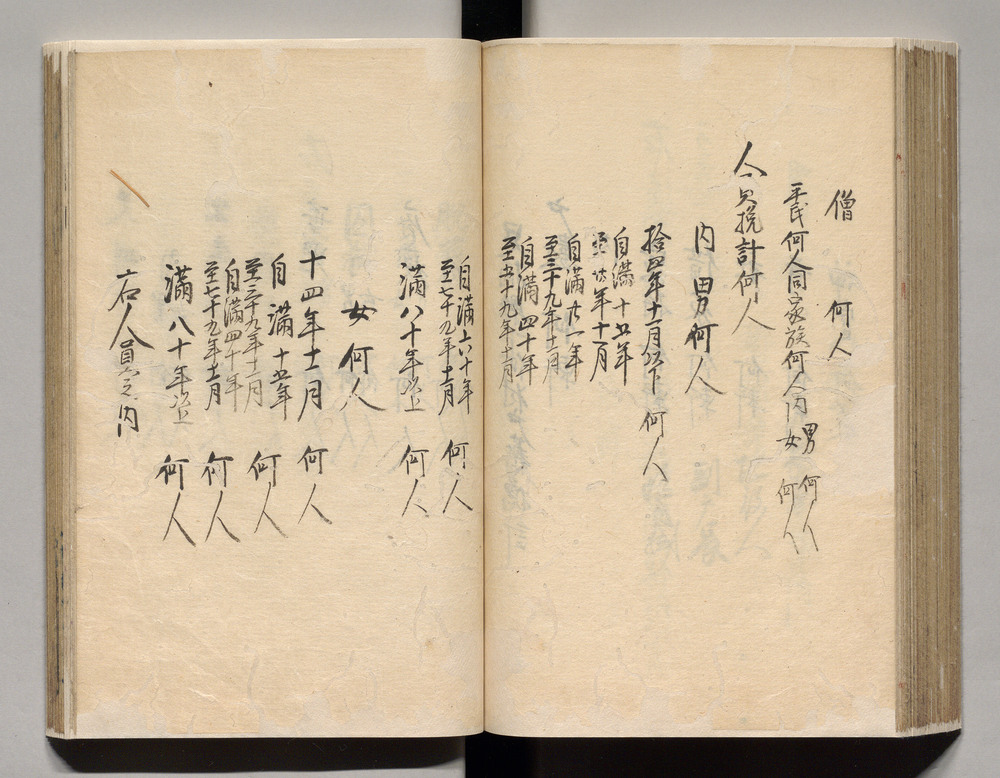 僧　何人
平民何人同家族何人内男何人
女何人
人員総計何人
内男何人
拾四年十一月以下何人
自満十五年
至廿年十一月
自満廿一年
至三十九年十一月
自満四十年
至五十九年十一月
自満六十年
至七十九年十一月　何人
満八十年以上　何人
女何人
十四年十一月　何人
自満十五年
至三十九年十一月　何人
自満四十年
至七十九年十一月　何人
満八十年以上　何人
右人員之内